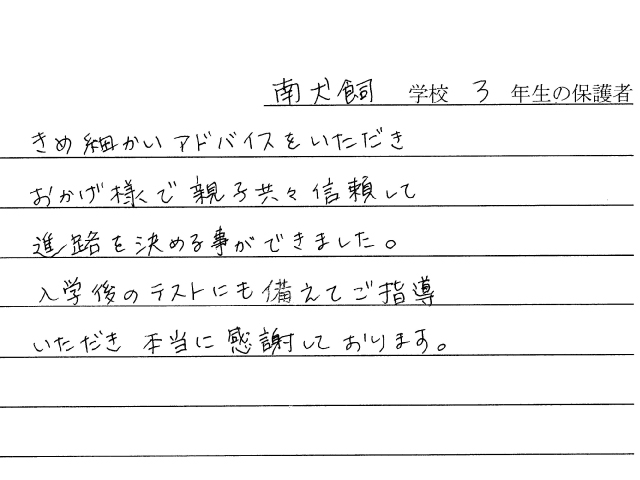 南犬飼 学校 3 年生の保護者
きめ細かいアドバイスをいただき
おかげ様で親子共々信頼して
進路を決める事ができました。
入学後のテストにも備えてご指導
いただき本当に感謝しております。